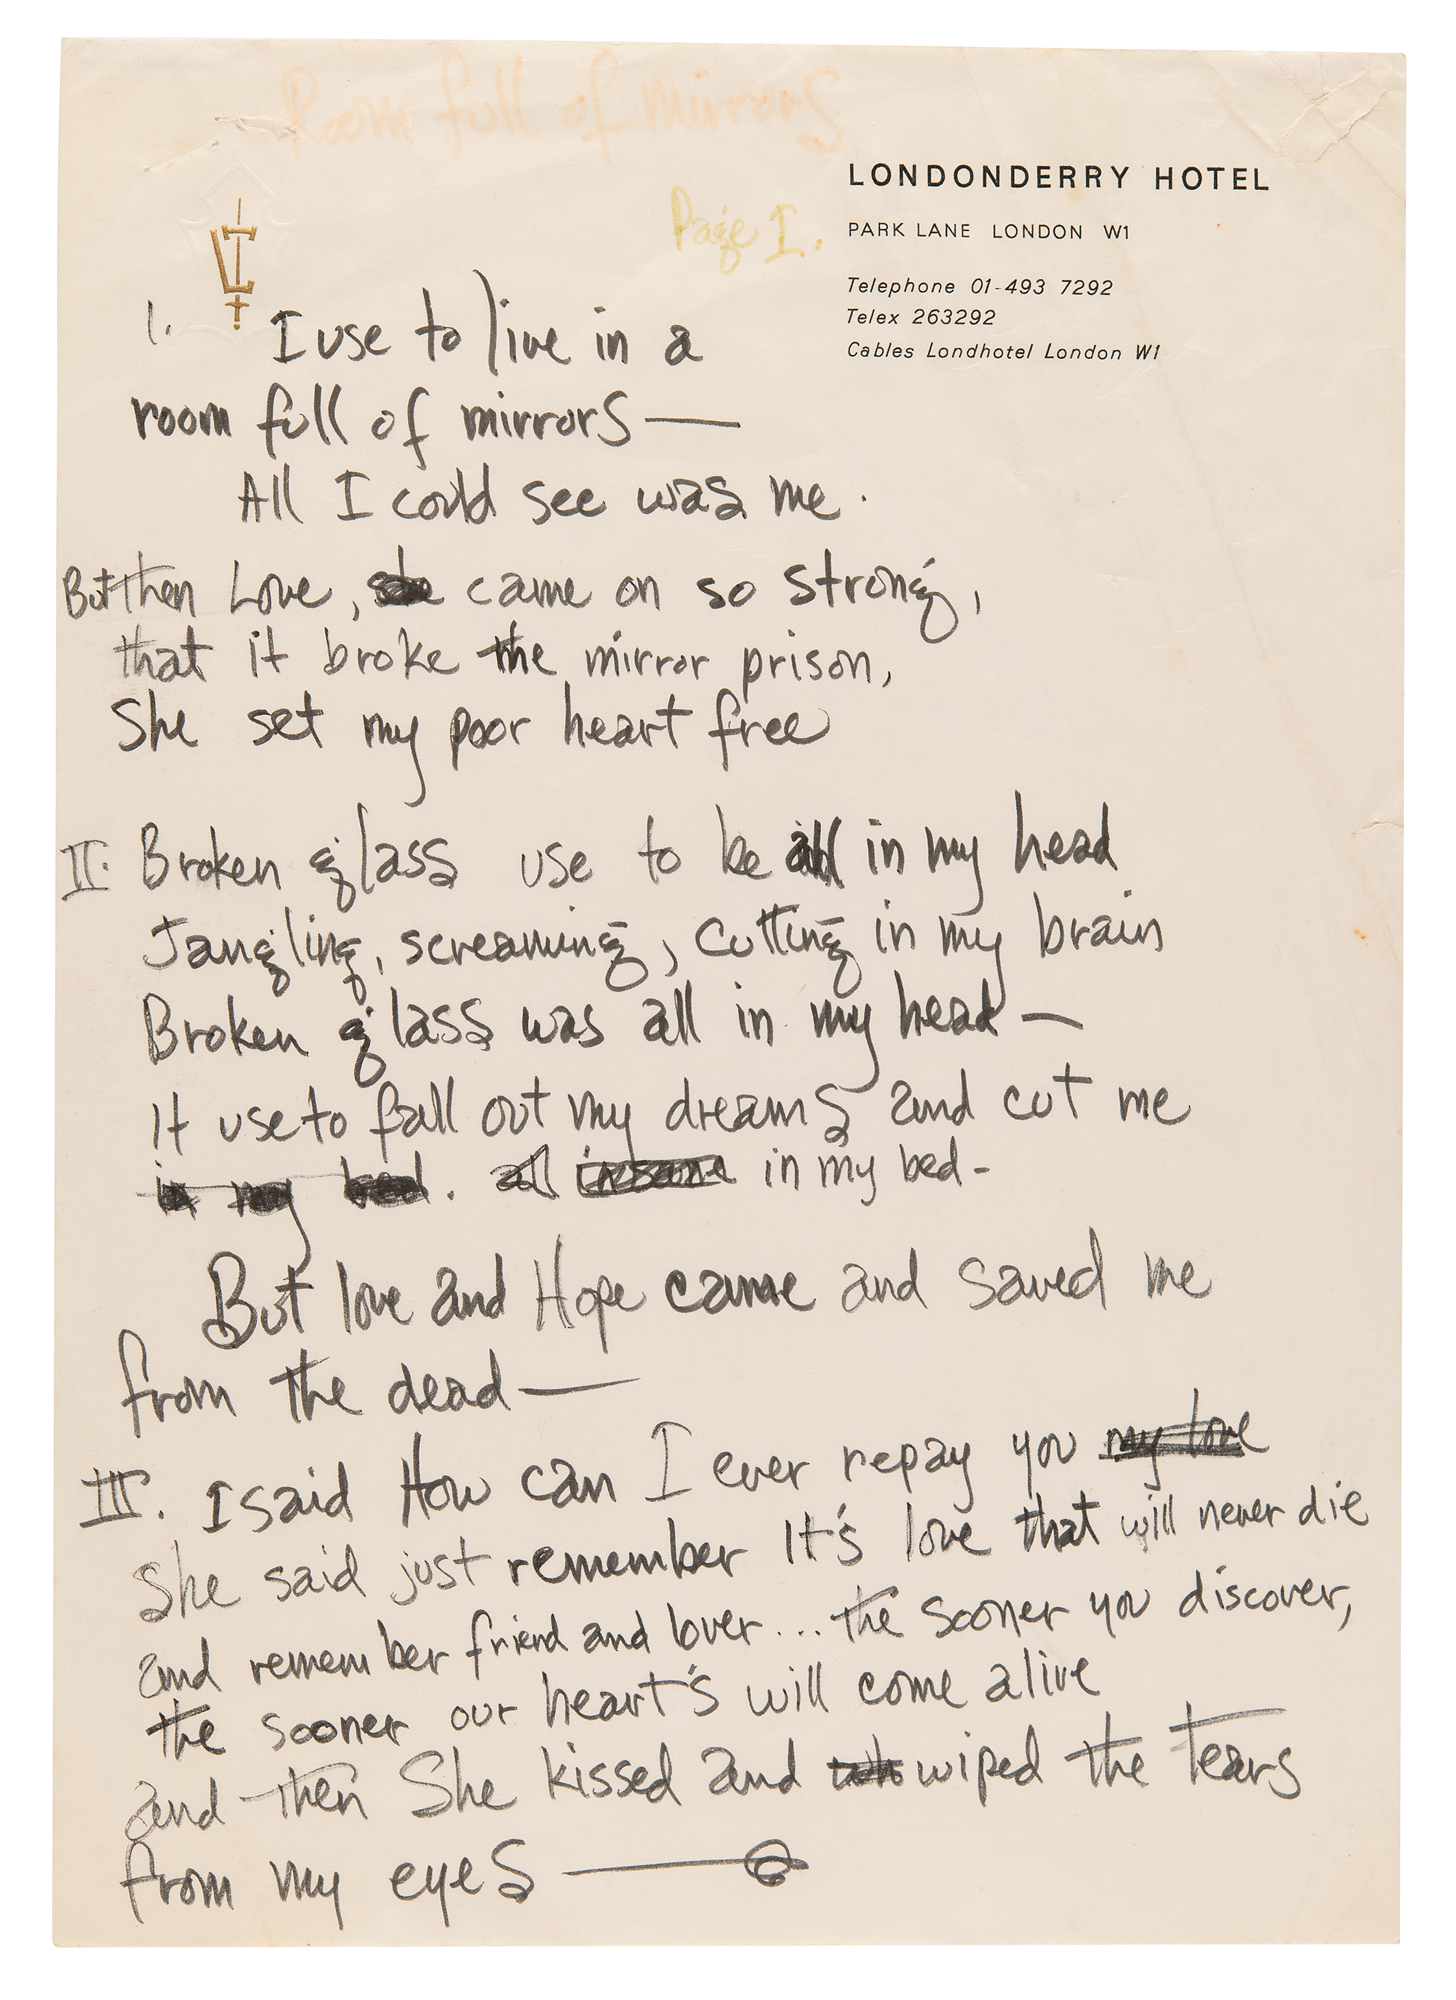 Room full of mirrors
LONDONDERRY HOTEL
Page I.
PARK LANE LONDON W1
Telephone 01-493 7292
Telex 263292
Cables Londhotel London W1
1. I use to live in a
room full of mirrors —
All I could see was me.
But then Love, she came on so strong,
that it broke the mirror prison,
She set my poor heart free
II. Broken glass use to be all in my head
Jangling, screaming, cutting in my brain
Broken glass was all in my head —
It use to fall out my dreams and cut me
in my bed. all insane in my bed -
But love and Hope came and saved me
from the dead —
III. I said How can I ever repay you my love
She said just remember It's love that will never die
and remember friend and lover... the sooner you discover,
the sooner our heart's will come alive
and then She kissed and wiped the tears
from my eyes —